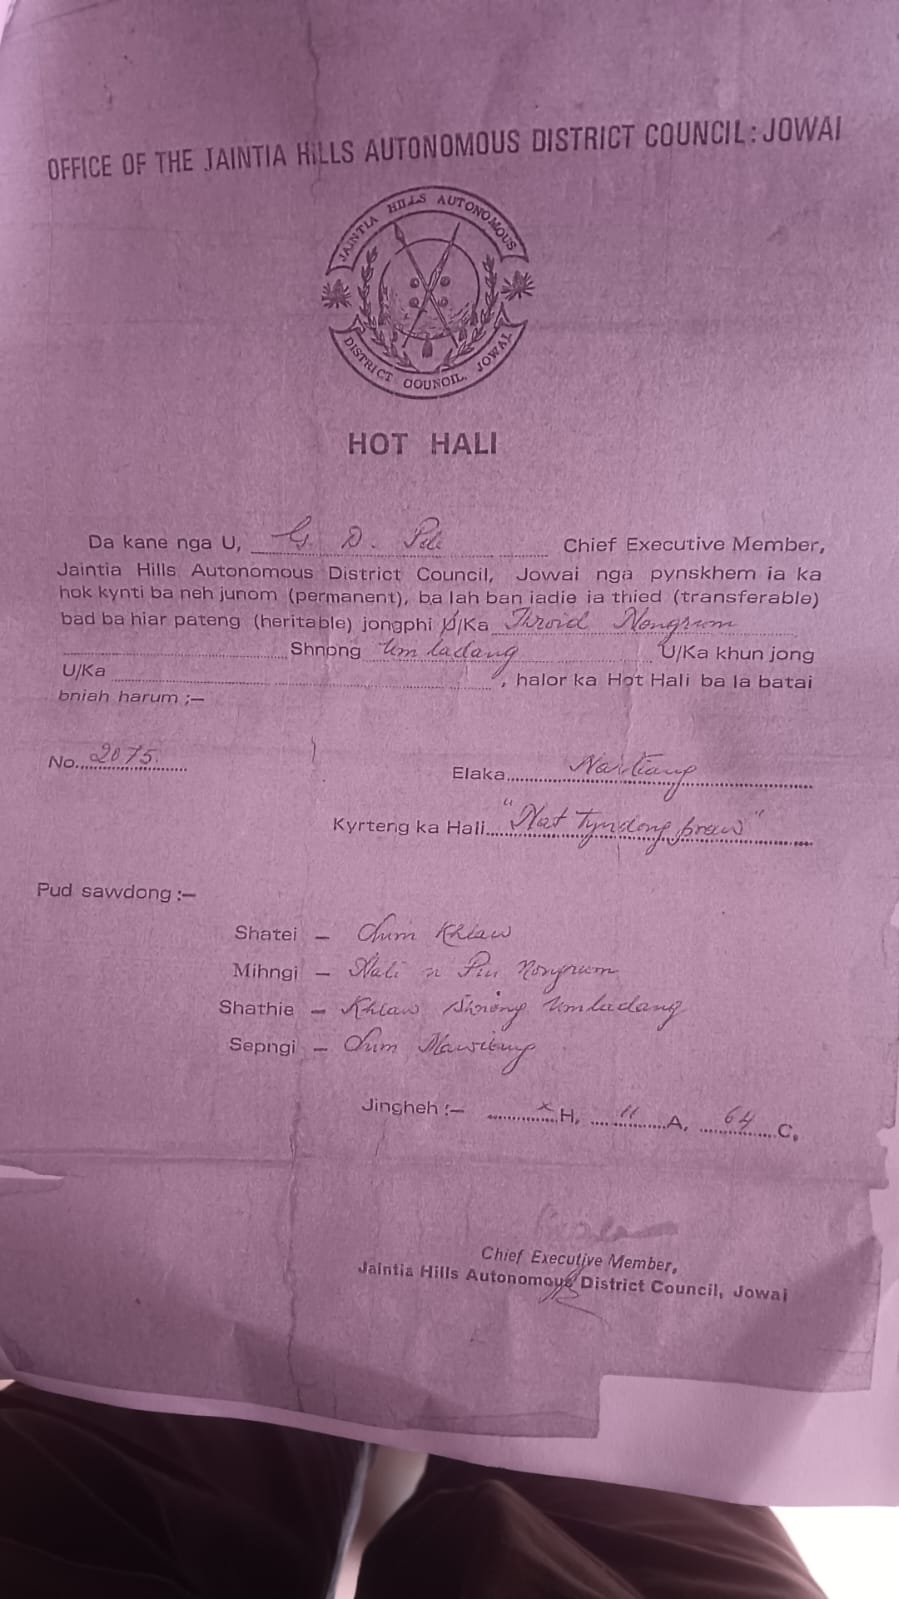 OFFICE OF THE JAINTIA HILLS AUTONOMOUS DISTRICT COUNCIL: JOWAI
JAINTIA HILLS AUTONOMOUS
DISTRICT COUNCIL, JOWAI
HOT HALI
Da kane nga U, G. D. Chief Executive Member,
Jaintia Hills Autonomous District Council, Jowai nga pynskhem ia ka
hok kynti ba neh junom (permanent), ba lah ban iadie ia thied (transferable)
bad ba hiar pateng (heritable) jongphi U/Ka Throid Nongrum
Shnong Umladang U/Ka khun jong
U/Ka , halor ka Hot Hali ba la batai
bniah harum ;—
No. 2075.
Elaka Nartiang
Kyrteng ka Hali "Hat Tyndong praw"
Pud sawdong :—
Shatei — Chim Khlaw
Mihngi — Hali Nongrum
Shathie — Khlaw Shnong Umladang
Sepngi — Mawriang
Jingheh :— x H, 11 A, 64 C.
Chief Executive Member,
Jaintia Hills Autonomous District Council, Jowai